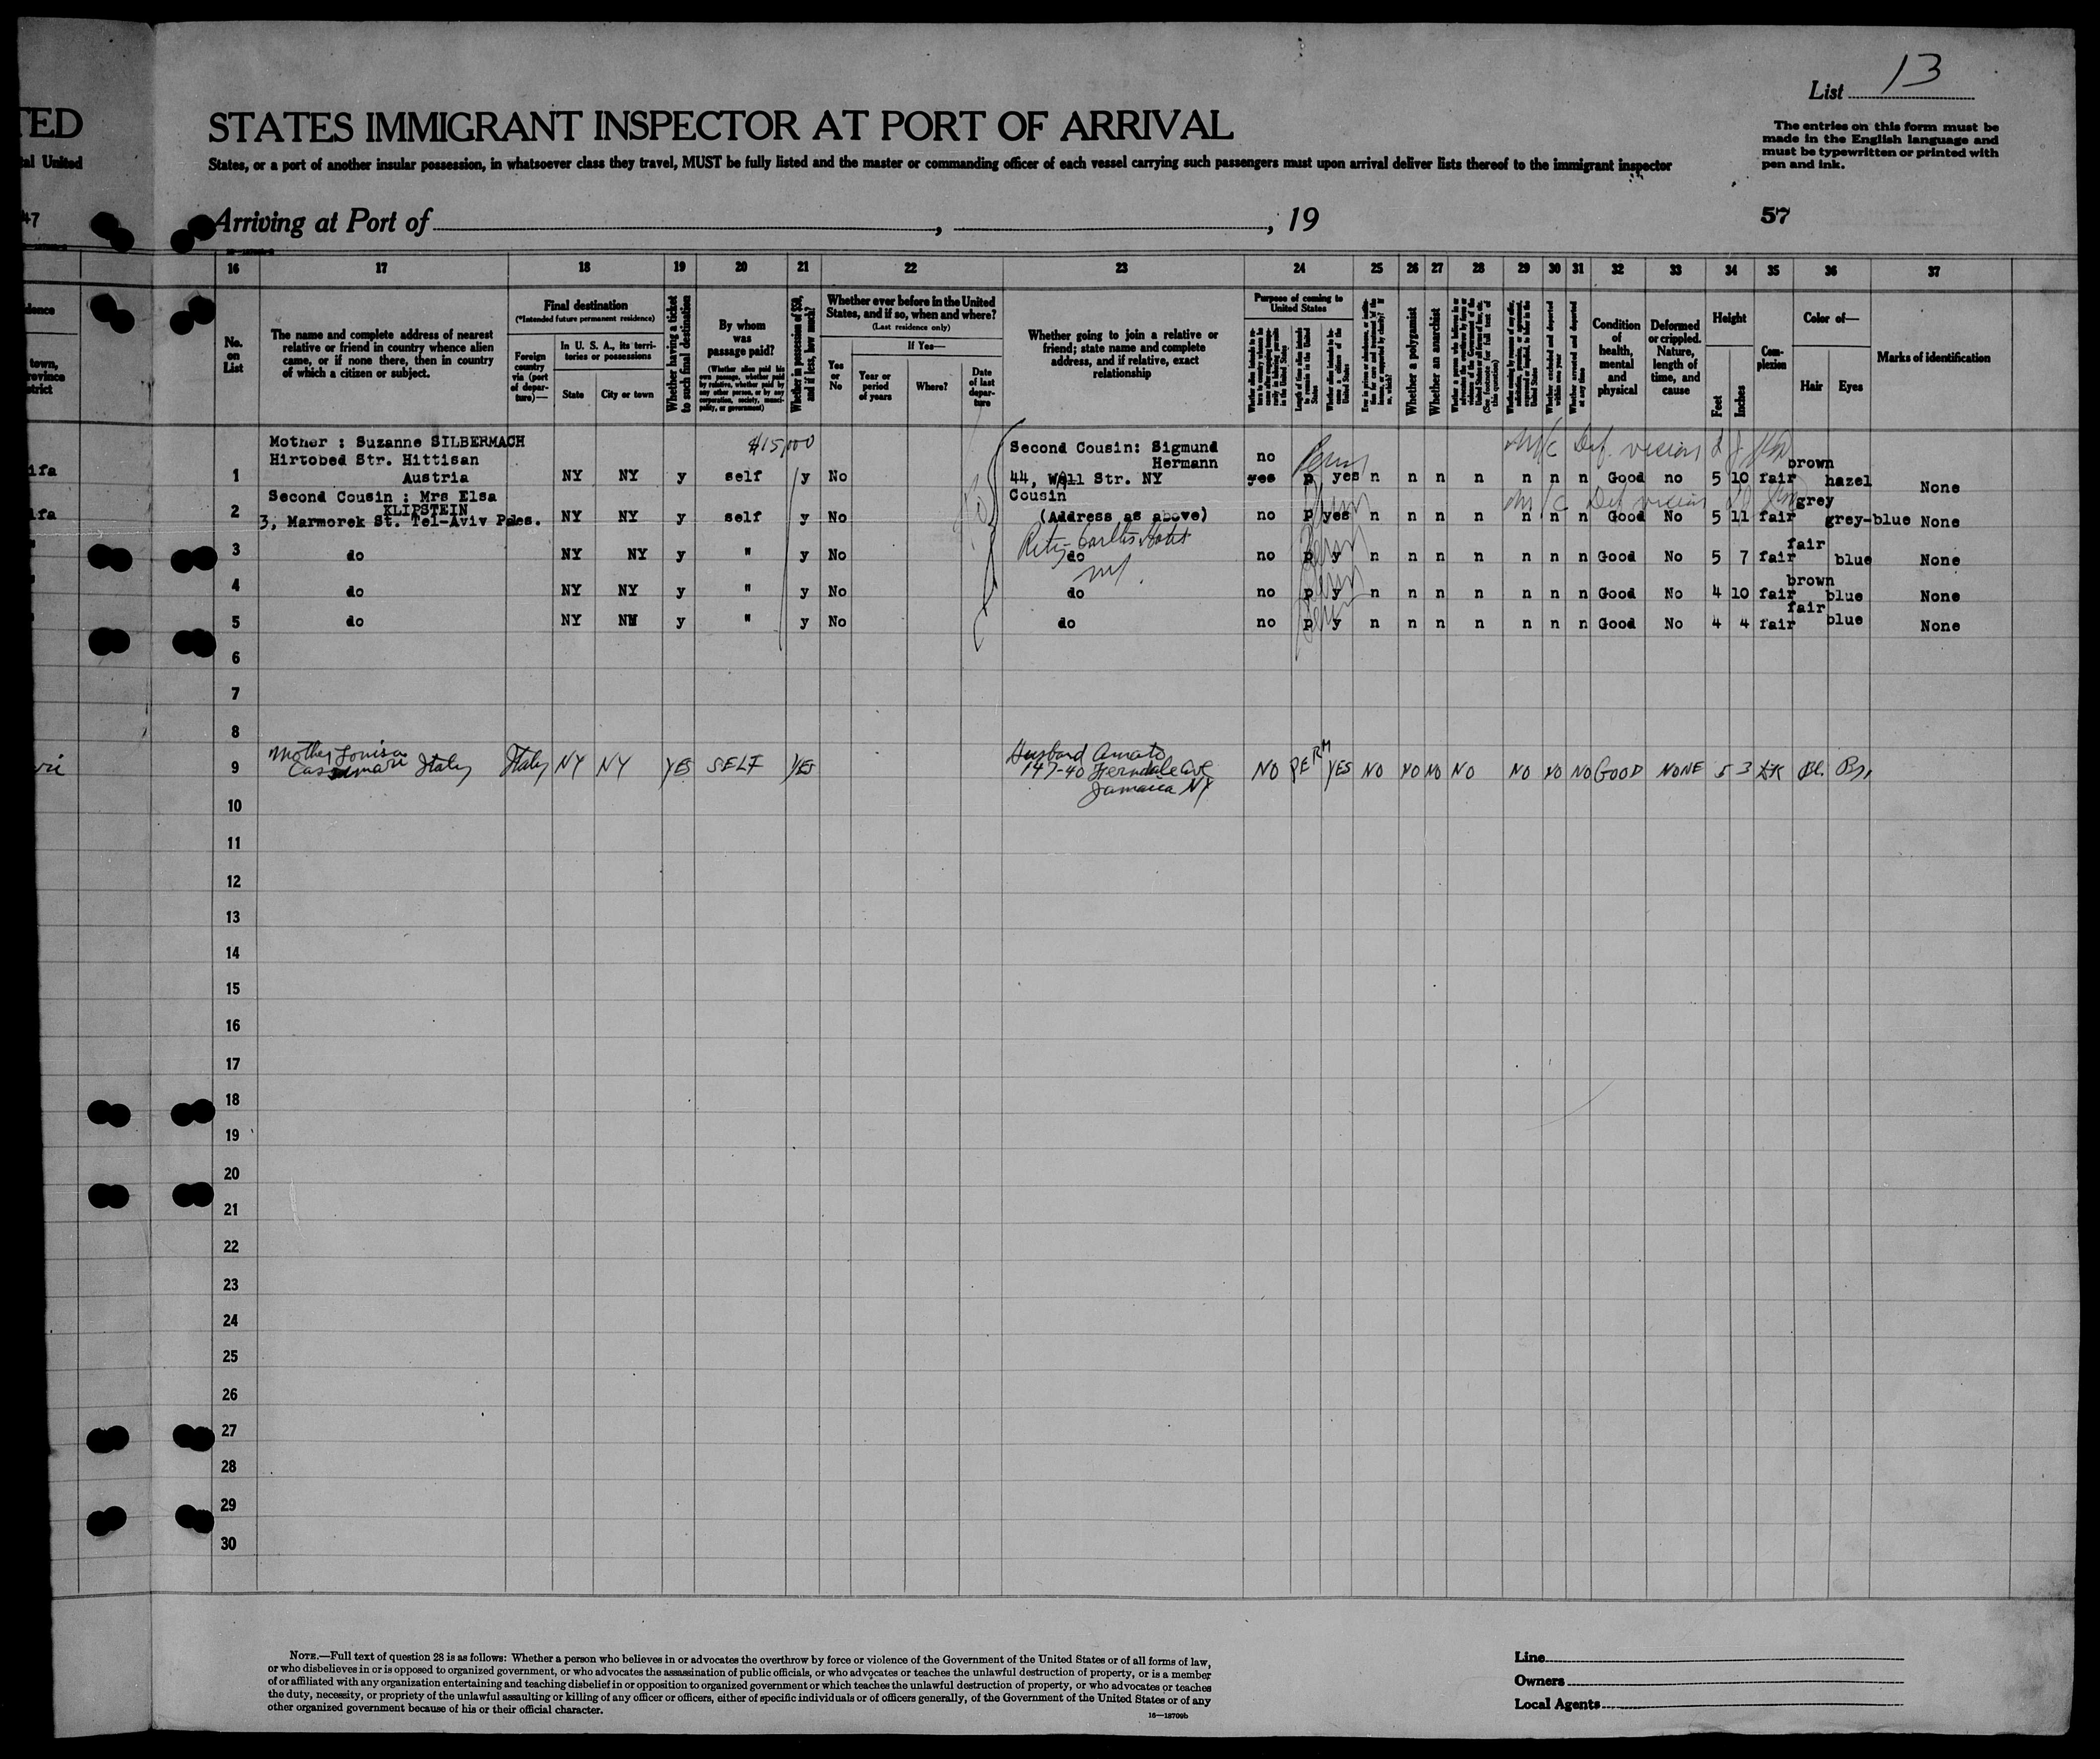 TED
al United
47
List 13
STATES IMMIGRANT INSPECTOR AT PORT OF ARRIVAL
The entries on this form must be
made in the English language and
must be typewritten or printed with
pen and ink.
States, or a port of another insular possession, in whatsoever class they travel, MUST be fully listed and the master or commanding officer of each vessel carrying such passengers must upon arrival deliver lists thereof to the immigrant inspector
Arriving at Port of , , 19
57
16 17 18 19 20 21 22 23 24 25 26 27 28 29 30 31 32 33 34 35 36 37
No. on List
The name and complete address of nearest
relative or friend in country whence alien
came, or if none there, then in country
of which a citizen or subject.
Final destination
(*Intended future permanent residence)
Foreign country via (port of departure)—
In U. S. A., its territories or possessions
State
City or town
Whether having a ticket to such final destination
By whom was passage paid?
(Whether alien paid his own passage, whether paid by relative, whether paid by any other person, or by any corporation, society, municipality, or government)
Whether in possession of $50, and if less, how much?
Whether ever before in the United
States, and if so, when and where?
(Last residence only)
Yes or No
If Yes—
Year or period of years
Where?
Date of last departure
Whether going to join a relative or
friend; state name and complete
address, and if relative, exact
relationship
Purpose of coming to United States
Length of time alien intends to remain in the United States
Whether a polygamist
Whether an anarchist
Whether excluded and deported within one year
Whether arrested and deported at any time
Condition of health, mental and physical
Deformed or crippled. Nature, length of time, and cause
Height
Feet
Inches
Complexion
Color of—
Hair
Eyes
Marks of identification
ifa
Mother : Suzanne SILBERMACH
Hirtobed Str. Hittisan
Austria
$15,000
Second Cousin: Sigmund
Hermann
44, Wall Str. NY
Perm
Def. vision
1 NY NY y self y No no yes p yes n n n n n n n Good no 5 10 fair brown hazel None
ifa
Second Cousin : Mrs Elsa
KLIPSTEIN
3, Marmorek St. Tel-Aviv Pales.
Cousin
(Address as above)
Def vision
2 NY NY y self y No no p yes n n n n n n n Good No 5 11 fair grey grey-blue None
Ritz-Carlton Hotel
NY.
3 do NY NY y " y No do no p y n n n n n n n Good No 5 7 fair fair blue None
4 do NY NY y " y No do no p y n n n n n n n Good No 4 10 fair brown blue None
5 do NY NY y " y No do no p y n n n n n n n Good No 4 4 fair fair blue None
6
7
8
Mother Louisa
Italy
Husband Amato
147-40 Ferndale Ave
Jamaica NY
9 Italy NY NY YES SELF YES NO PERM YES NO NO NO NO NO NO NO GOOD NONE 5 3 DK Bl. Br.
10
11
12
13
14
15
16
17
18
19
20
21
22
23
24
25
26
27
28
29
30
NOTE.—Full text of question 28 is as follows: Whether a person who believes in or advocates the overthrow by force or violence of the Government of the United States or of all forms of law,
or who disbelieves in or is opposed to organized government, or who advocates the assassination of public officials, or who advocates or teaches the unlawful destruction of property, or is a member
of or affiliated with any organization entertaining and teaching disbelief in or opposition to organized government or which teaches the unlawful destruction of property, or who advocates or teaches
the duty, necessity, or propriety of the unlawful assaulting or killing of any officer or officers, either of specific individuals or of officers generally, of the Government of the United States or of any
other organized government because of his or their official character.
16—18709b
Line
Owners
Local Agents